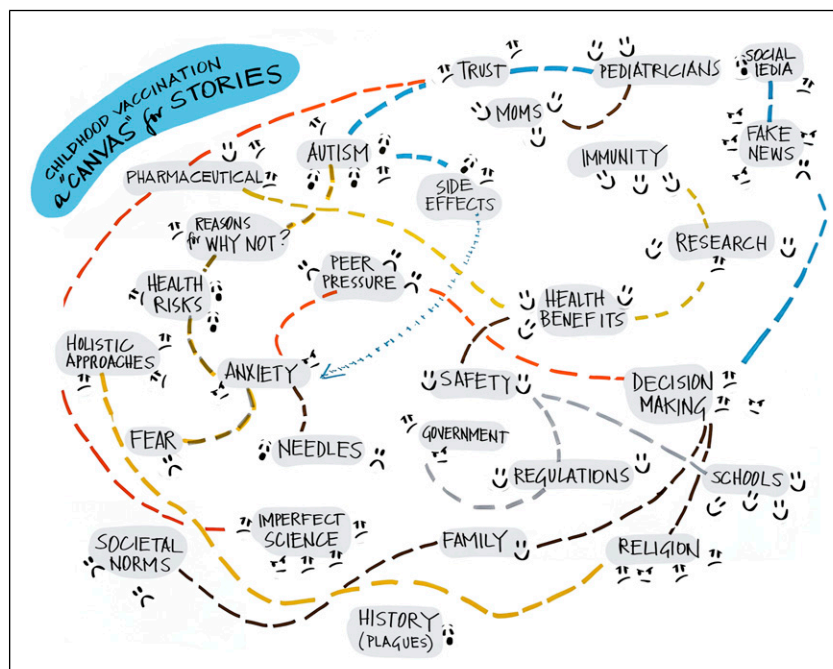 CHILDHOOD VACCINATION
a "CANVAS" for STORIES
TRUST
PEDIATRICIANS
SOCIAL
MEDIA
MOMS
AUTISM
IMMUNITY
FAKE
NEWS
PHARMACEUTICAL
SIDE
EFFECTS
REASONS
for WHY NOT?
RESEARCH
PEER
PRESSURE
HEALTH
RISKS
HEALTH
BENEFITS
HOLISTIC
APPROACHES
ANXIETY
SAFETY
DECISION
MAKING
FEAR
NEEDLES
GOVERNMENT
REGULATIONS
SCHOOLS
IMPERFECT
SCIENCE
SOCIETAL
NORMS
FAMILY
RELIGION
HISTORY
(PLAGUES)